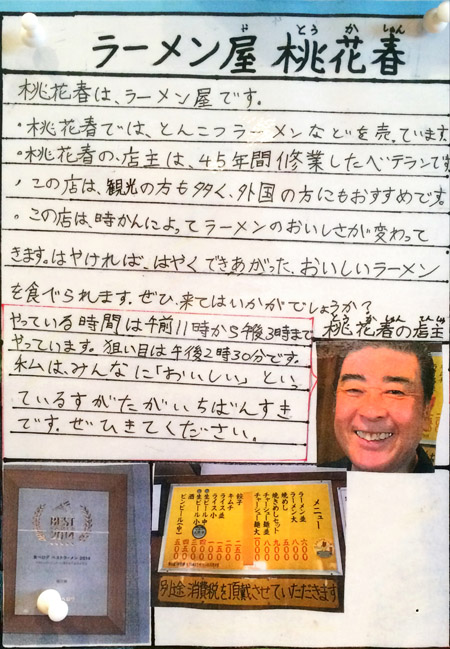 ラーメン屋 桃花春
とうかしゅん
桃花春は、ラーメン屋です。
・桃花春では、とんこつラーメンなどを売っています
・桃花春の店主は、45年間修業したベテランです
・この店は、観光の方も多く、外国の方にもおすすめです
・この店は、時かんによってラーメンのおいしさが変わって
きます。はやければ、はやくできあがった、おいしいラーメン
を食べられます。ぜひ、来てはいかがでしょうか?
やっている時間は午前11時から午後3時まで
やっています。狙い目は午後2時30分です。
私は、みんなに「おいしい」とい
っているすがたがいちばんすき
です。ぜひきてください。
桃花春の店主
BEST
2014
メニュー
ラーメン並
ラーメン大
焼めし
焼きめしセット
チャーシュー麺
チャーシュー麺大
餃子
キムチ
ライス並
ライス小
生ビール中
生ビール小
酒
ビンビール(中)
別途 消費税を頂戴させていただきます